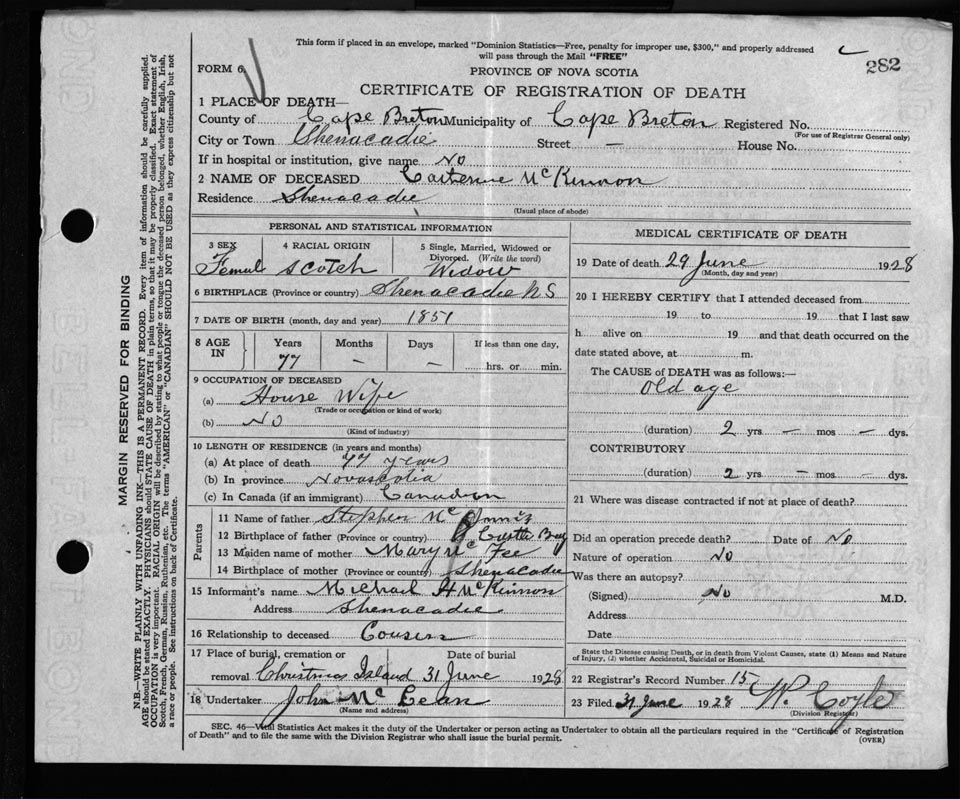 This form if placed in an envelope, marked "Dominion Statistics—Free, penalty for improper use, $300," and properly addressed
will pass through the Mail "FREE"
282
FORM 6
PROVINCE OF NOVA SCOTIA
CERTIFICATE OF REGISTRATION OF DEATH
1 PLACE OF DEATH—
County of Cape Breton Municipality of Cape Breton Registered No.
(For use of Registrar General only)
City or Town Shenacadie Street — House No.
If in hospital or institution, give name No
2 NAME OF DECEASED Catherine McKinnon
Residence Shenacadie
(Usual place of abode)
PERSONAL AND STATISTICAL INFORMATION
3 SEX Female
4 RACIAL ORIGIN Scotch
5 Single, Married, Widowed or Divorced. (Write the word) Widow
6 BIRTHPLACE (Province or country) Shenacadie N S
7 DATE OF BIRTH (month, day and year) 1851
8 AGE IN Years 77 Months — Days — If less than one day, hrs. or min.
9 OCCUPATION OF DECEASED
(a) House Wife
(Trade or occupation or kind of work)
(b) No
(Kind of industry)
10 LENGTH OF RESIDENCE (in years and months)
(a) At place of death 77 years
(b) In province Novascotia
(c) In Canada (if an immigrant) Canadian
Parents
11 Name of father Stephen Mc
12 Birthplace of father (Province or country) Castle Bay
13 Maiden name of mother Mary McFee
14 Birthplace of mother (Province or country) Shenacadie
15 Informant's name Michael H McKinnon
Address Shenacadie
16 Relationship to deceased Cousin
17 Place of burial, cremation or removal Christmas Island Date of burial 31 June 1928
18 Undertaker John McLean
(Name and address)
MEDICAL CERTIFICATE OF DEATH
19 Date of death 29 June 1928
(Month, day and year)
20 I HEREBY CERTIFY that I attended deceased from
19 to 19 that I last saw
h alive on 19 and that death occurred on the
date stated above, at m.
The CAUSE of DEATH was as follows:—
Old age
(duration) 2 yrs — mos — dys.
CONTRIBUTORY
(duration) 2 yrs — mos — dys.
21 Where was disease contracted if not at place of death?
Did an operation precede death? Date of No
Nature of operation No
Was there an autopsy?
(Signed) No M.D.
Address
Date
State the Disease causing Death, or in death from Violent Causes, state (1) Means and Nature
of Injury, (2) whether Accidental, Suicidal or Homicidal.
22 Registrar's Record Number 15
23 Filed 31 June 1928 W. Coyle
(Division Registrar)
SEC. 46—Vital Statistics Act makes it the duty of the Undertaker or person acting as Undertaker to obtain all the particulars required in the "Certificate of Registration
of Death" and to file the same with the Division Registrar who shall issue the burial permit.
(OVER)
MARGIN RESERVED FOR BINDING
N.B.—WRITE PLAINLY WITH UNFADING INK—THIS IS A PERMANENT RECORD. Every item of information should be carefully supplied.
AGE should be stated EXACTLY. PHYSICIANS should STATE CAUSE OF DEATH in plain terms, so that it may be properly classified. Exact statement of
OCCUPATION is very important. RACIAL ORIGIN will be described by stating to what people or tongue the deceased person belonged, whether English, Irish,
Scotch, French, German, Russian, Ruthenian, etc. The terms "AMERICAN" or "CANADIAN" SHOULD NOT BE USED as they express citizenship but not
a race or people. See instructions on back of Certificate.